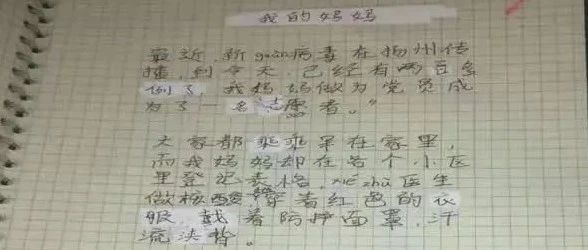 我的妈妈
最近,新guān病毒在扬州传
播,到今天,已经有两百多
例了,我妈妈做为党员成
为了一名志愿者。"
大家都乖乖呆在家里,
而我妈妈却在各个小区
里登记表格,xié zhù医生
做核酸,穿着红色的衣
服,戴着防护面罩,汗
流浃背。